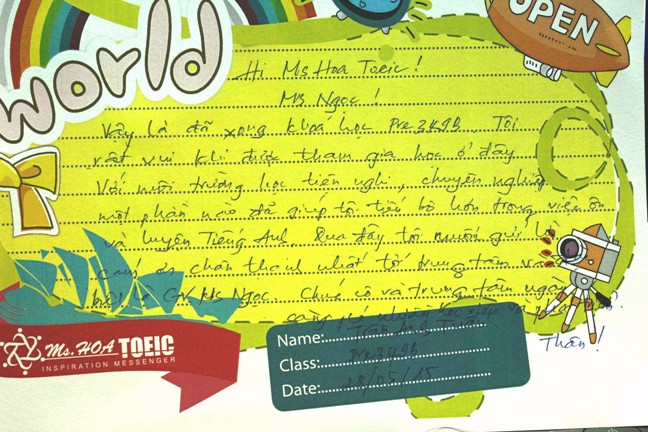 world
OPEN
Hi Ms Hoa Toeic!
Ms Ngọc!
Vậy là đã xong khoá học Pre 349B. Tôi
rất vui khi được tham gia học ở đây
Với môi trường học tiện nghi, chuyên nghiệp
một phần nào đã giúp tôi tiến bộ hơn trong việc ôn
và luyện Tiếng Anh. Qua đây tôi muốn gửi lời
cảm ơn chân thành nhất tới trung tâm và
GV Ms Ngọc. Chúc cô và trung tâm ngày
càng
Thân!
Ms. HOA TOEIC
INSPIRATION MESSENGER
Name:
Class: Pre 349B
Date: 28/05/15